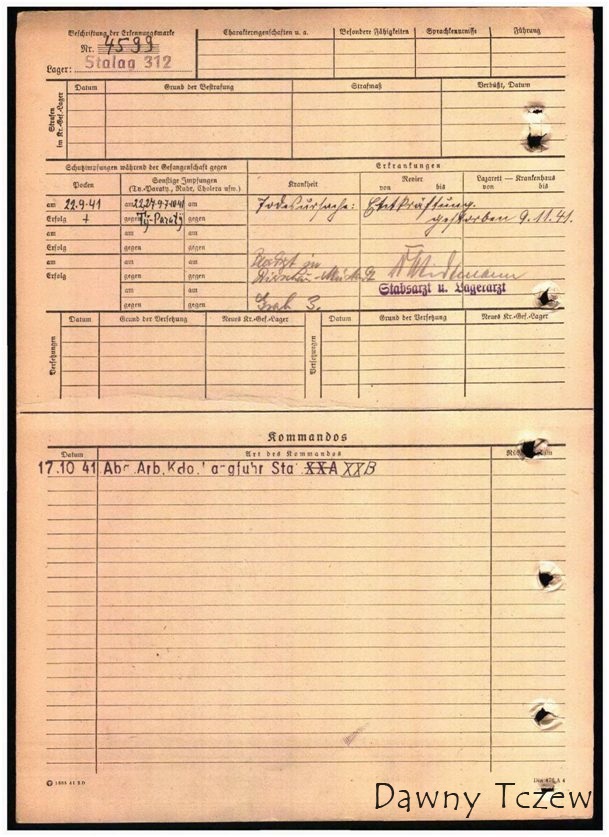 Beschriftung der Erkennungsmarke
Nr. 4599
Lager: Stalag 312
Charaktereigenschaften u. a.
Besondere Fähigkeiten
Sprachkenntnisse
Führung
Strafen
im Kr.-Gef.-Lager
Datum
Grund der Bestrafung
Strafmaß
Verbüßt, Datum
Schutzimpfungen während der Gefangenschaft gegen
Erkrankungen
Pocken
Sonstige Impfungen
(Ty.-Paraty., Ruhr, Cholera usw.)
Krankheit
Revier
von bis
Lazarett — Krankenhaus
von bis
am 22.9.41 am am
Erfolg + gegen Ty-Paraty gegen
am am am
Erfolg gegen gegen
am am am
Erfolg gegen gegen
am am
gegen gegen
Todesursache: Entkräftung.
gestorben 9.11.41.
Grab 3.
Stabsarzt u. Lagerarzt
Versetzungen
Datum
Grund der Versetzung
Neues Kr.-Gef.-Lager
Versetzungen
Datum
Grund der Versetzung
Neues Kr.-Gef.-Lager
Kommandos
Datum
Art des Kommandos
17.10 41 Arb. Kdo. XXA XXB
Dawny Tczew